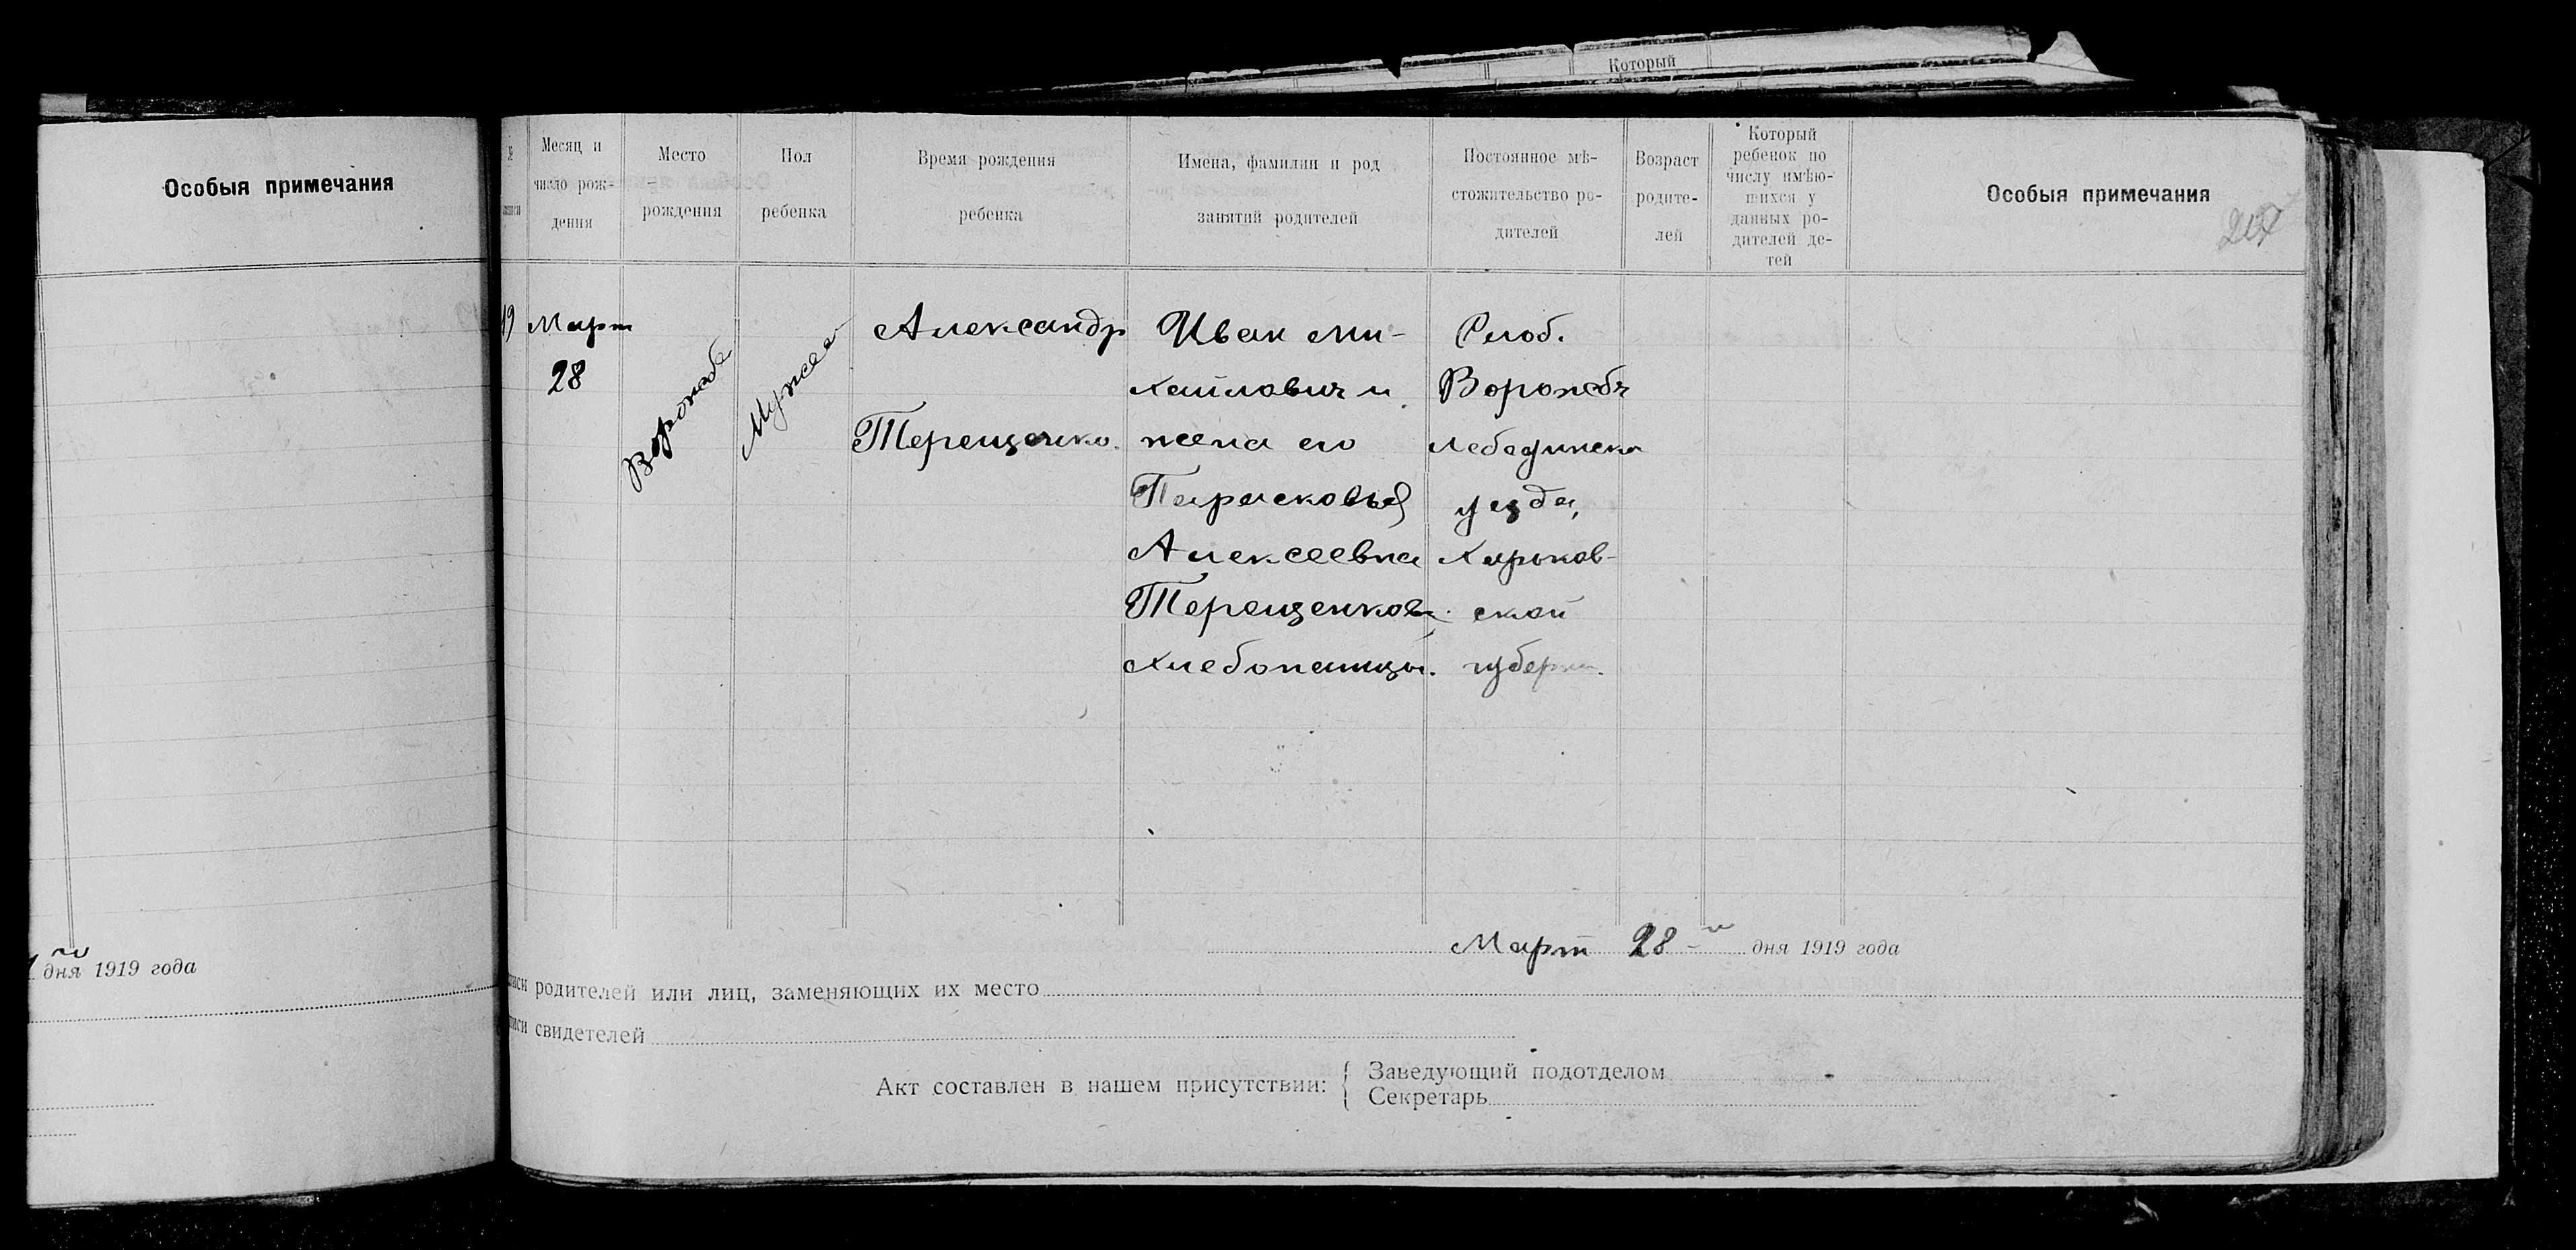 Который
Особыя примечания
дня 1919 года
№
Месяц и
число рож-
дения
Место
рождения
Пол
ребенка
Время рождения
ребенка
Имена, фамилии и род
занятий родителей
Постоянное мѣ-
стожительство ро-
дителей
Возраст
родите-
лей
Который
ребенок по
числу имѣю-
щихся у
данных ро-
дителей де-
тей
Особыя примечания
207
19
Март
28
Ворожба
Мужской
Александр
Терещенко.
Иван Ми-
хайлович и
жена его
Парасковья
Алексеевна
Терещенков.
Хлебопашцы.
Слоб.
Ворожбы
Лебединско
уезда,
Харьков-
ской
губерни.
Март 28-го дня 1919 года
родителей или лиц, заменяющих их место
свидетелей
Акт составлен в нашем присутствии:
Заведующий подотделом
Секретарь